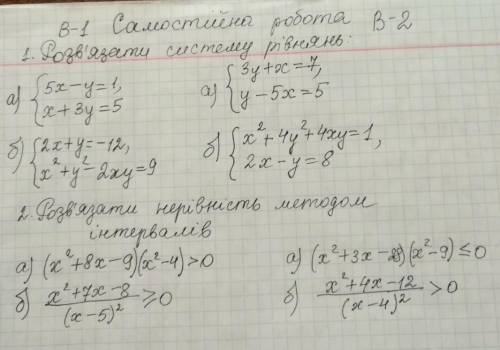 В-1 Самостійна робота В-2
1. Розв'язати систему рівнянь:
а) { 5x - y = 1,
x + 3y = 5
б) { 2x + y = -12,
x² + y² - 2xy = 9
а) { 3y + x = 7,
y - 5x = 5
б) { x² + 4y² + 4xy = 1,
2x - y = 8
2. Розв'язати нерівність методом
інтервалів
а) (x² + 8x - 9)(x² - 4) > 0
б) (x² + 7x - 8)/(x - 5)² ≥ 0
а) (x² + 3x - 28)(x² - 9) ≤ 0
б) (x² + 4x - 12)/(x - 4)² > 0